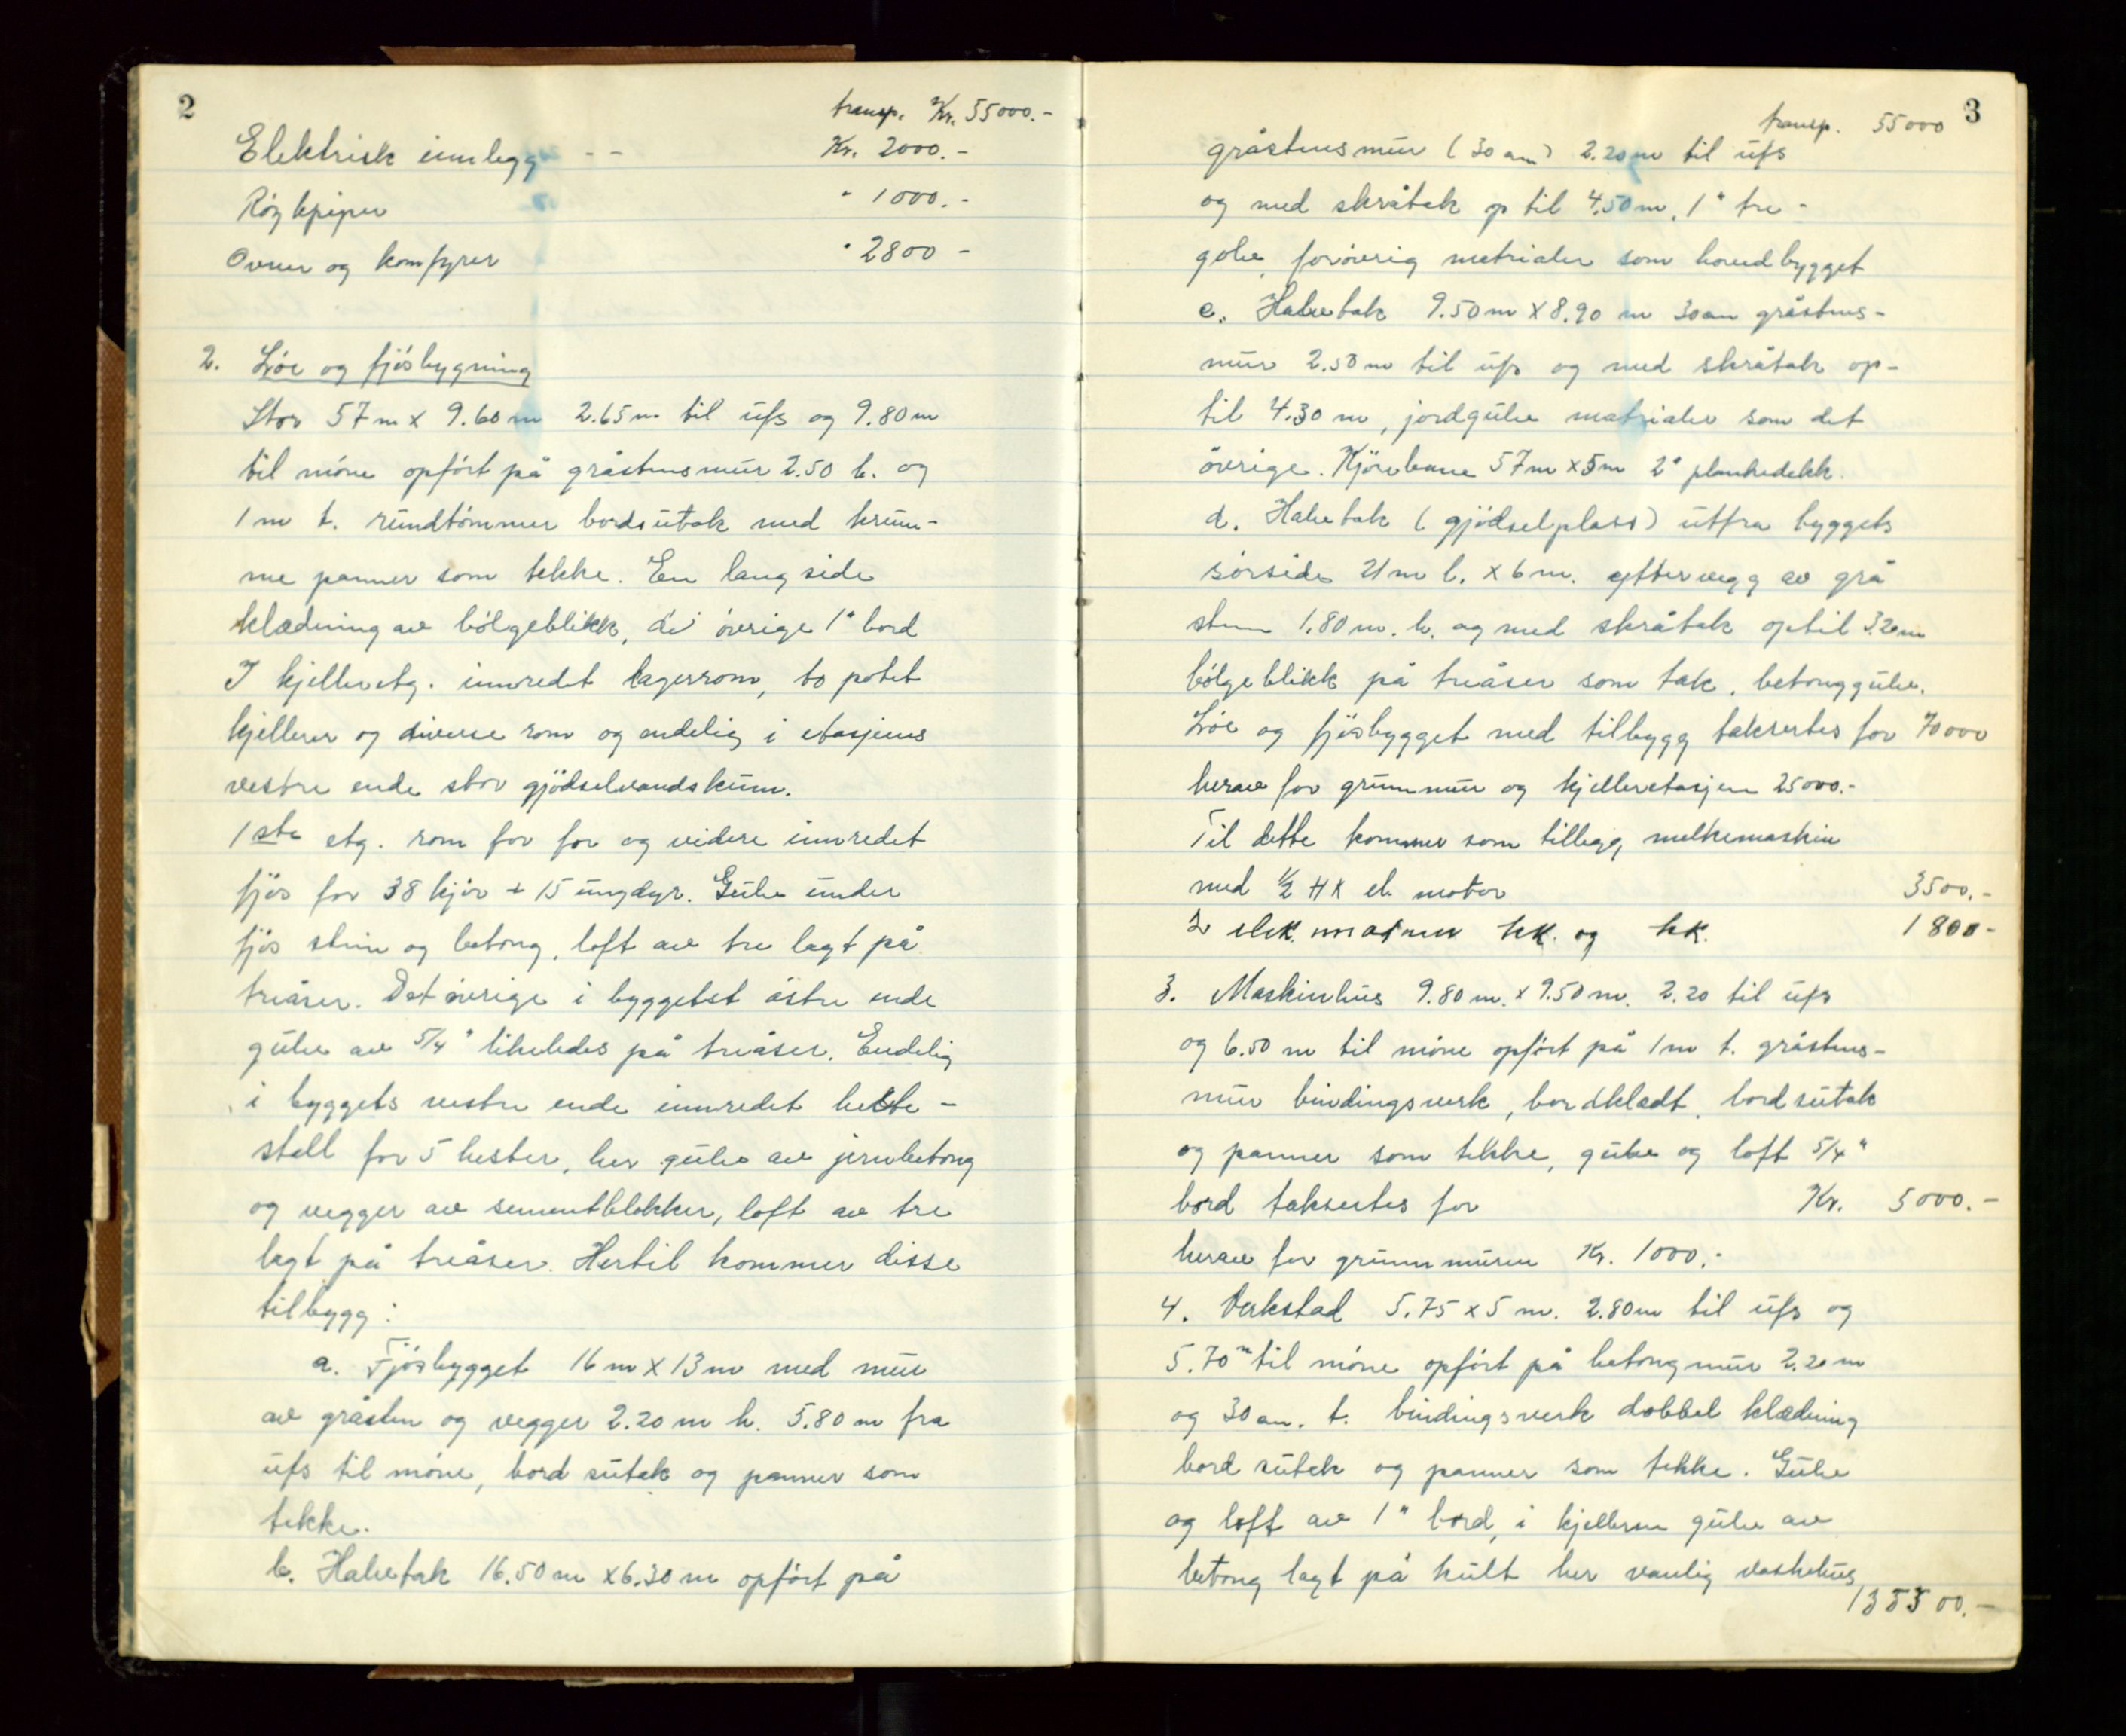 2
transp. Kr. 55000.-
Elektrisk innlegg - - Kr. 2000.-
Røykpiper " 1000.-
Ovner og komfyrer " 2800 -
2. Löe og fjösbygning
Stor 57 m x 9.60 m 2.65 m til ufs og 9.80 m
til möne opfört på gråstensmur 2.50 h. og
1 m t. rundtömmer bordsutak med krum-
me panner som tekke. En langside
klædning av bölgeblikk, de övrige 1" bord
I kjelleretg. innredet lagerrom, to potet
kjellere og diverse rom og endelig i etasjens
vestre ende stor gjödselvandskum.
1ste etg. rom for for og videre innredet
fjös for 38 kjör + 15 ungdyr. Gulv under
fjös stein og betong, loft av tre lagt på
treåser. Det övrige i byggetst östre ende
gulv av 5/4" likeledes på treåser. Endelig
i byggets vestre ende innredet heste-
stall for 5 hester, her gulv av jernbetong
og vegger av sementblokker, loft av tre
lagt på treåser. Hertil kommer disse
tilbygg:
a. Fjösbygget 16 m x 13 m med mur
av gråsten og vegger 2.20 m h. 5.80 m fra
ufs til möne, bord sutak og panner som
tekke.
b. Halvetak 16.50 m x 6.30 m opfört på
3
transp. 55000
gråstensmur (30 cm) 2.20 m til ufs
og med skråtak op til 4.50 m, 1" tre-
golv, forövrig matrialer som hovedbygget
c. Halvetak 9.50 m x 8.90 m 30 cm gråstens-
mur 2.50 m til ufs og med skråtak op-
til 4.30 m, jordgulv matrialer som det
övrige. Kjörebane 57 m x 5 m 2" plankedekk.
d. Halvetak (gjödselplass) utfra byggets
sörside 21 m l. x 6 m. yttervegg av grå
sten 1.80 m. h. og med skråtak optil 3.20 m
bölgeblikk på treåser som tak, betonggulv.
Löe og fjösbygget med tilbygg taksertes for 70000
herav for grunnmur og kjelleretasjen 25000.-
Til dette kommer som tillegg melkemaskin
med 1/2 HK el. motor 3500.-
2 elek. motorer hk. og hk. 1800-
3. Maskinhus 9.80 m. x 9.50 m. 2.20 til ufs
og 6.50 m til möne opfört på 1 m t. gråstens-
mur bindingsverk, bordkledt, bordsutak
og panner som tekke, gulv og loft 5/4"
bord taksertes for Kr. 5000.-
herav for grunnmuren Kr. 1000.-
4. Verkstad 5.75 x 5 m. 2.80 m til ufs og
5.70 m til möne opfört på betongmur 2.20 m
og 30 cm. t. bindingsverk dobbel klædning
bord sutak og panner som tekke. Gulv
og loft av 1" bord, i kjelleren gulv av
betong lagt på kult her vanlig vaskehus
135300.-